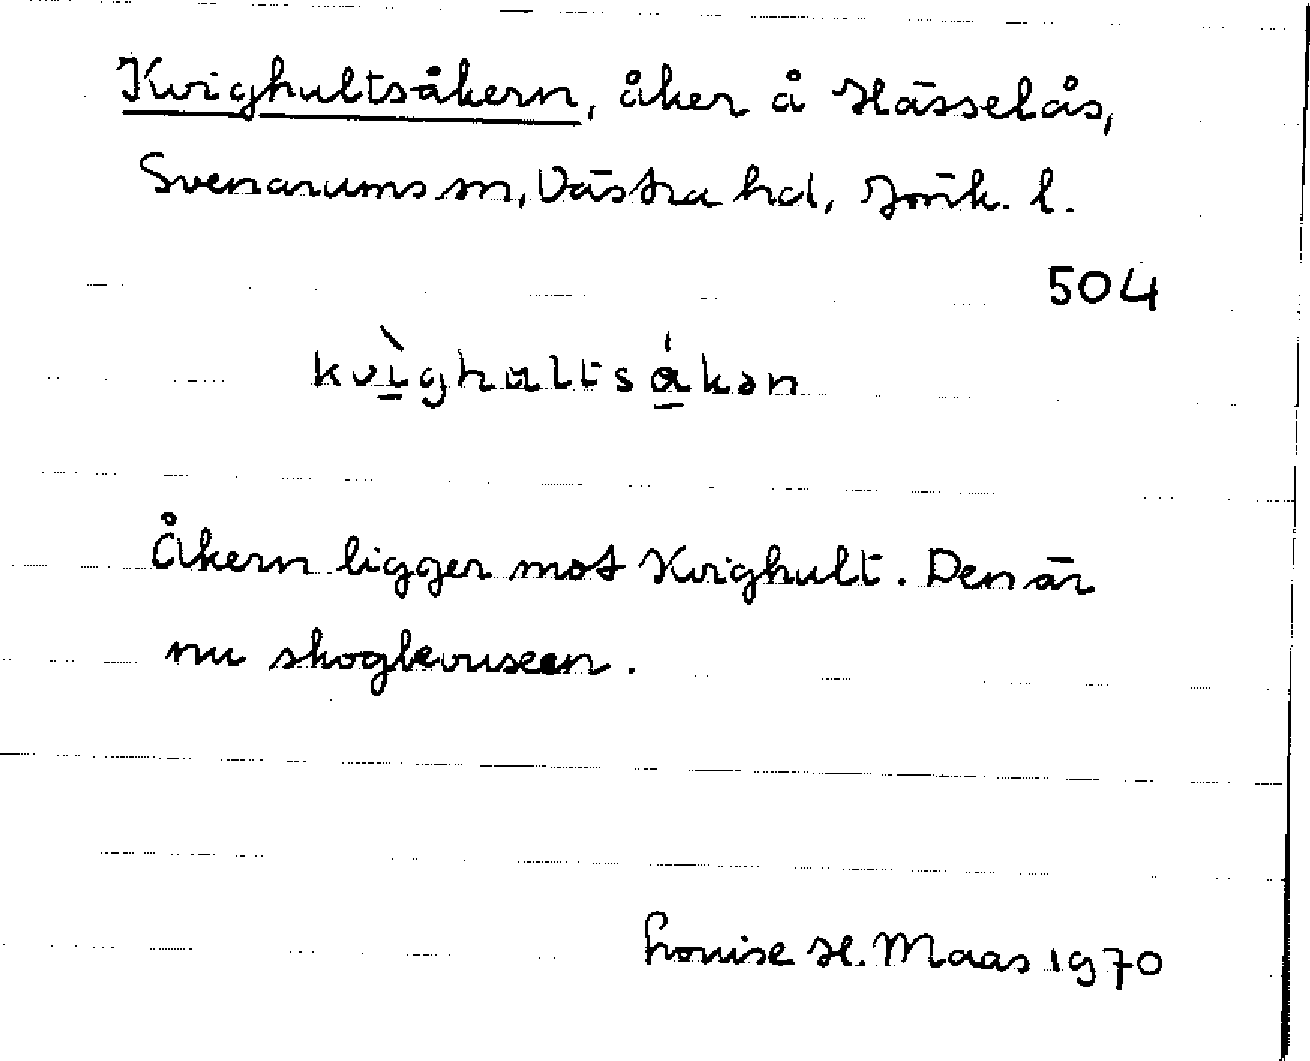 Kvighultsåkern, åker å Hässelås,
Svenarums sn, Västra hd, Jönk. l.
504
kvìghultsákən
Åkern ligger mot Kvighult. Den är
nu skogbevuxen.
Louise H. Maas 1970